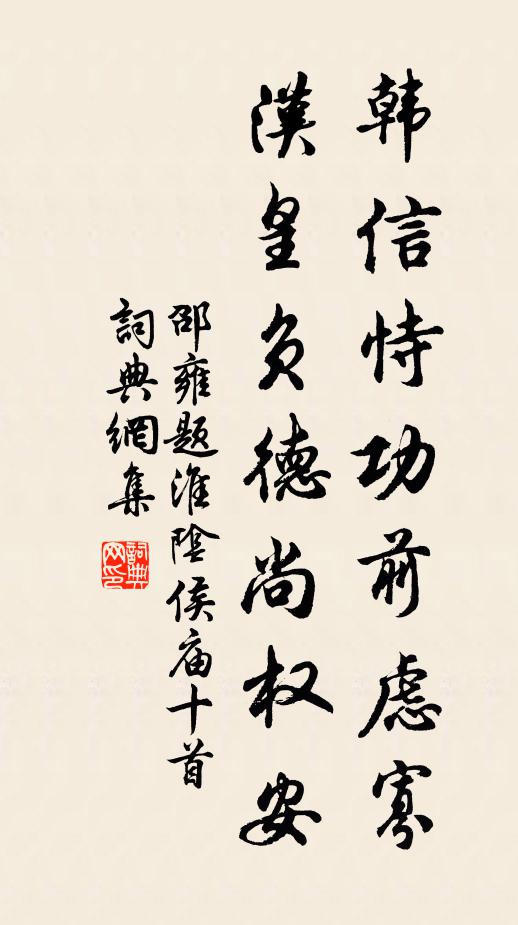 韩信恃功前虑寡
漢皇负德尚权安
邵雍题淮陰侯庙十首
詞典網集
詞典网印